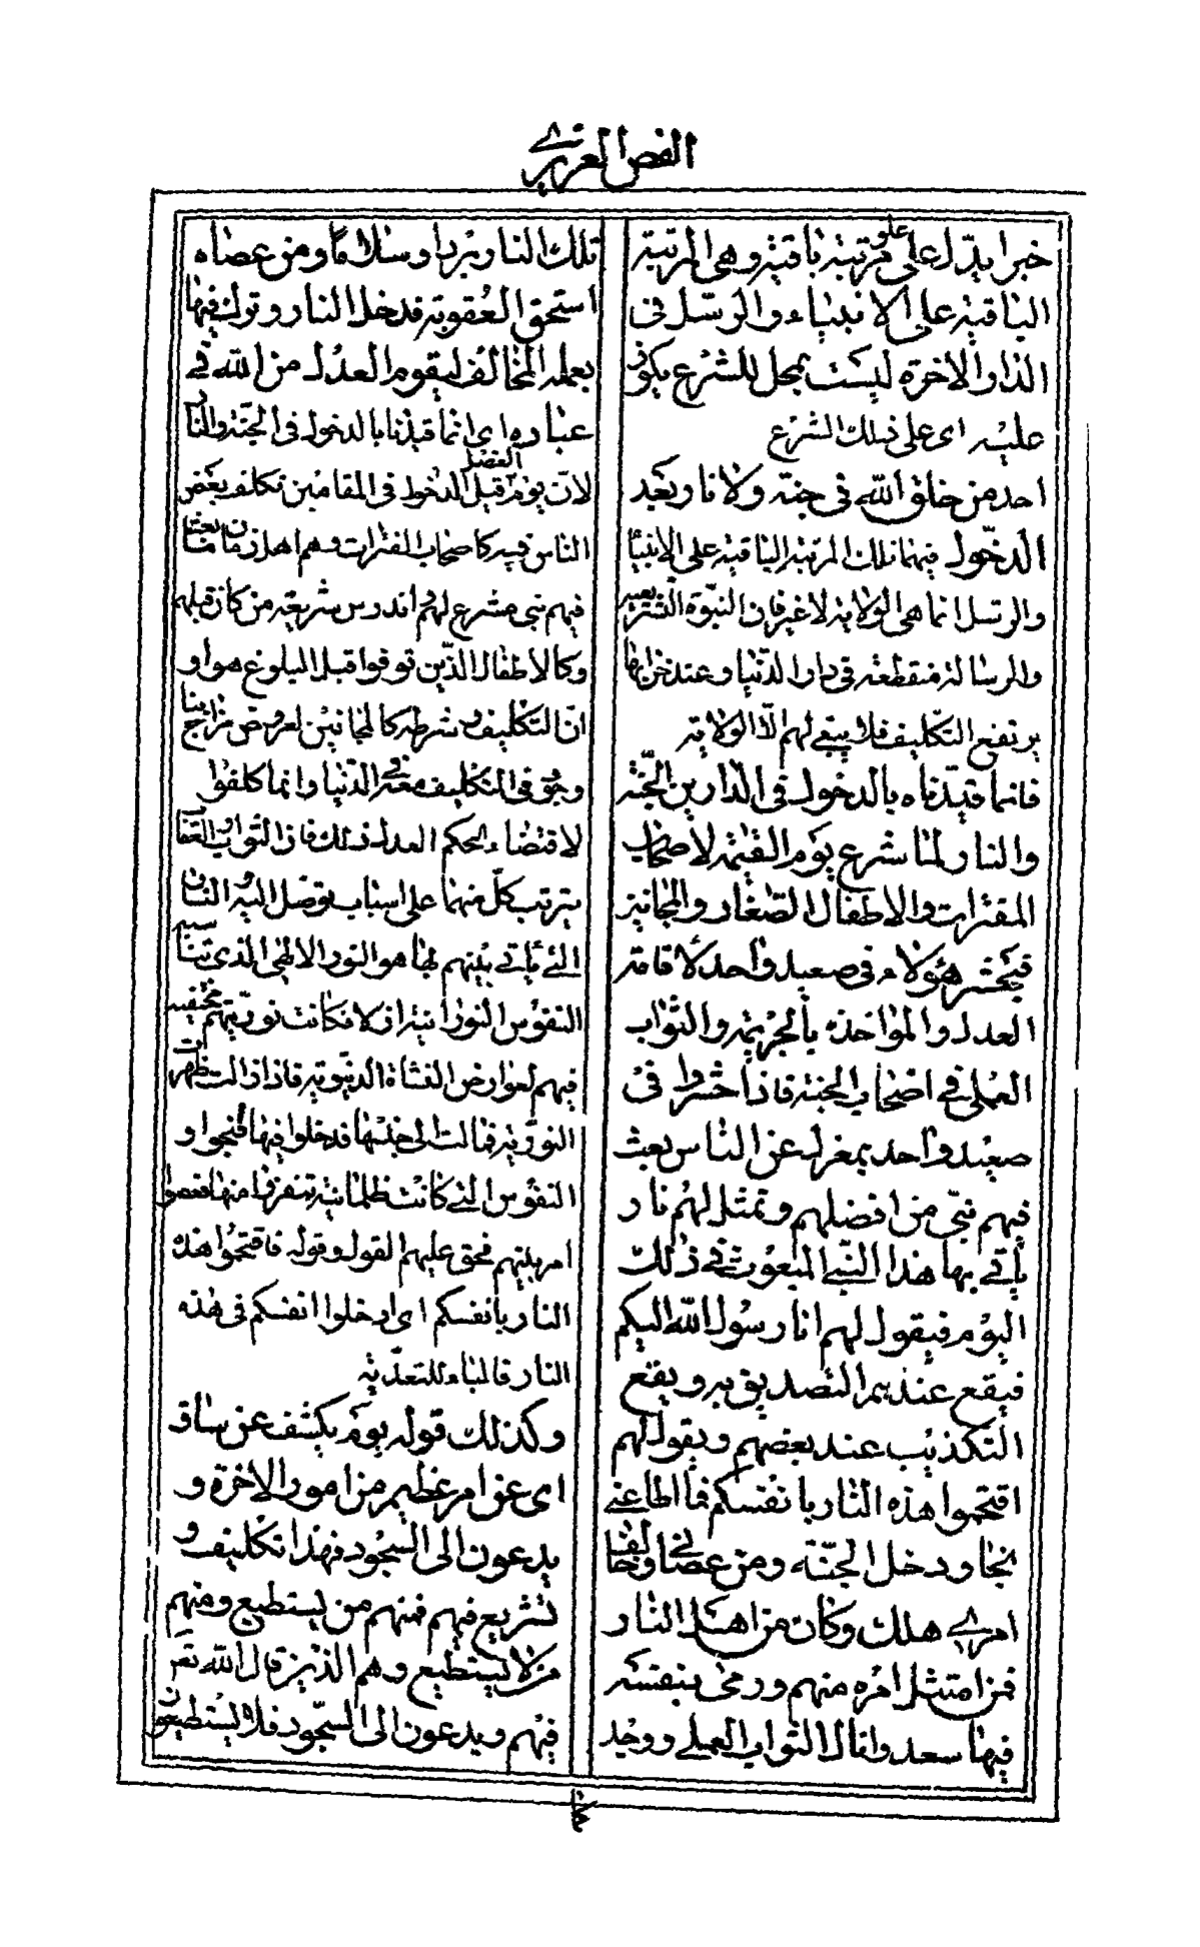 الفص العزيرى
خبرا يدل على علو مرتبة باقية وهى المرتبة
الباقية على الانبياء والرسل فى
الدار الاخرة ليست بمحل للشرع يكون
عليه اى على ذلك الشرع
احد من خلق الله فى جنة ولا نار وبعد
الدخول فيهما تلك المرتبة الباقية على الانبياء
والرسل انما هى الولاية لا غير فان النبوة التشريعية
والرسالة منقطعة فى دار الدنيا وعند خرابها
يرتفع التكليف فلا يبقى لهم الا الولاية
فانما قيدناه بالدخول فى الدارين الجنة
والنار لما شرع يوم القيمة لاصحاب
الفترات والاطفال الصغار والمجانين
فيحشر هؤلاء فى صعيد واحد لاقامة
العدل والمواخذة بالجريمة والثواب
العملى فى اصحاب الجنة فاذا حشروا فى
صعيد واحد بمعزل عن الناس بعث
فيهم نبى من افضلهم وتمثل لهم نار
ياتى بها هذا النبى المبعوث فى ذلك
اليوم فيقول لهم انا رسول الله اليكم
فيقع عندهم التصديق به ويقع
التكذيب عند بعضهم ويقول لهم
اقتحموا هذه النار بانفسكم فمن اطاعنى
نجا ودخل الجنة ومن عصانى وخالف
امرى هلك وكان من اهل النار
فمن امتثل امره منهم ورمى بنفسه
فيها سعد ونال الثواب العملى ووجد
تلك النار بردا وسلاما ومن عصاه
استحق العقوبة فدخل النار ونزل فيها
بعمله المخالف ليقوم العدل من الله فى
عباده اى انما قيدنا بالدخول فى الجنة والنار
لان يوم الفصل قبل الدخول فى المقامين تكلف بعض
الناس فيه كاصحاب الفترات وهم اهل زمان ما بعث
فيهم نبى مشرع لهم واندرس شريعة من كان قبلهم
وكالاطفال الذين توفوا قبل البلوغ هو او
ان التكليف وشرطه كالمجانين لعروض مزاجنا
وجوه فى التكليف معنى فى الدنيا وانما كلفوا
لاقتضاء الحكم العدل ذلك فان الثواب والعقاب
يترتب كل منهما على اسباب توصل اليه والنار
التى ياتى نبيهم بها هو النور الالهى الذى يناسبه
النفوس النورانية الا ان كانت نوريتهم مختفية
فيهم لعوارض النشاة الدنيوية فاذا زالت ظهرت
النورية فمالت الى جنسها فدخلوا فيها فنجوا و
النفوس التى كانت ظلمانية تنفر منها فعصوا
امر نبيهم فحق عليهم القول وقوله فاقتحموا هذه
النار بانفسكم اى ادخلوا انفسكم فى هذه
النار فالباء للتعدية
وكذلك قوله يوم يكشف عن ساق
اى عن امر عظيم من امور الاخرة و
يدعون الى السجود فهذا تكليف و
تشريع فيهم فمنهم من يستطيع ومنهم
من لا يستطيع وهم الذين قال الله تعـ
فيهم ويدعون الى السجود فلا يستطيعون
كما